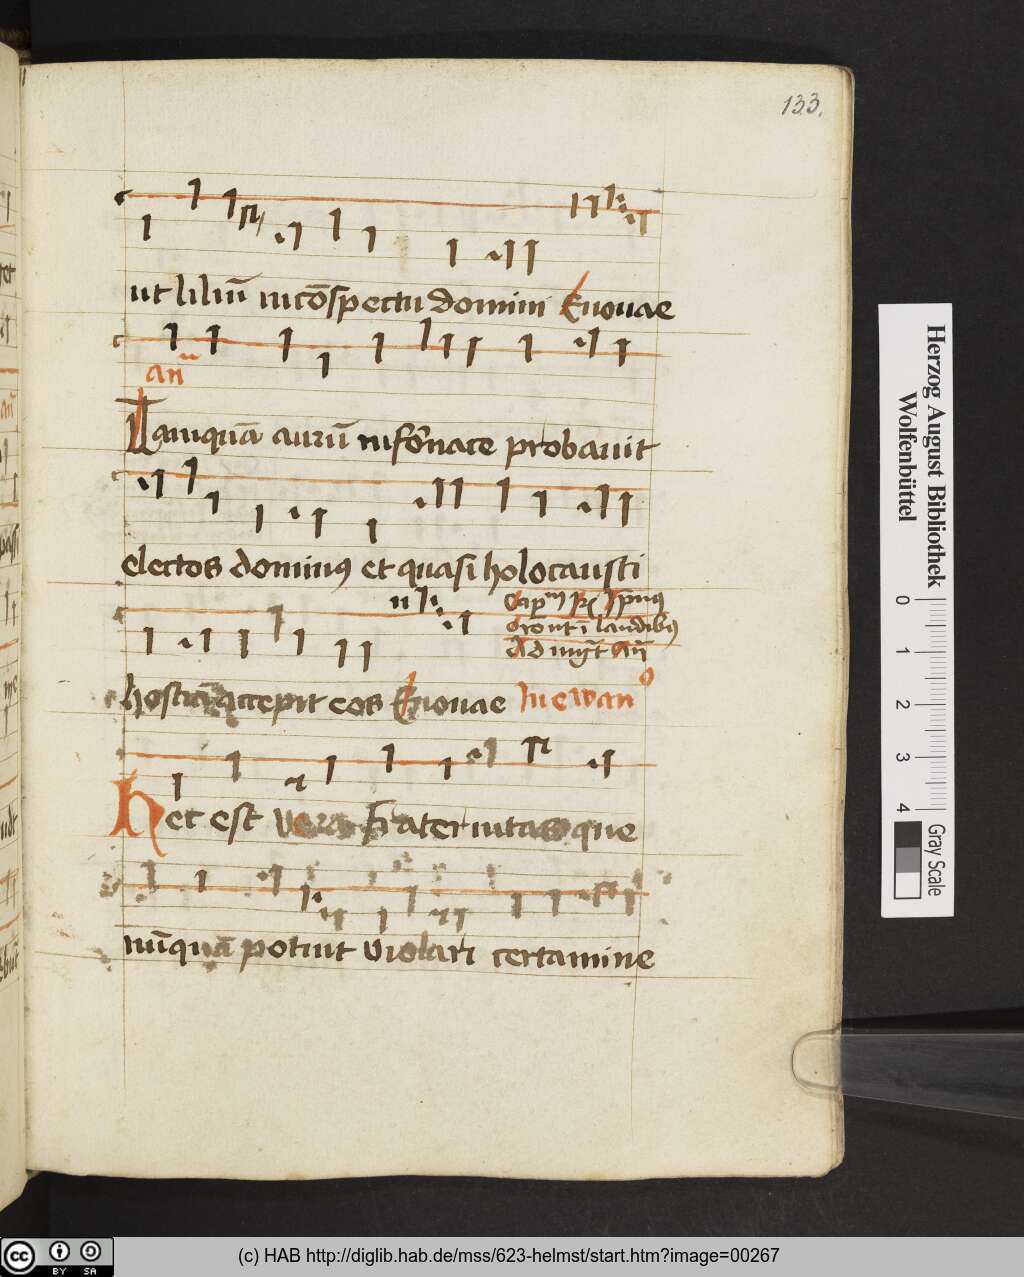 133.
ut liliū in cōspectu domini Euouae
an̄
Tamquā aurū in fornace probauit
electos dominus et quasi holocausti
Capᵐ
ad laudibus
Ad
hostiā accepit eos Euouae
Hec est vera fraternitas que
nūquā potuit violari certamine
Herzog August Bibliothek
Wolfenbüttel
0 1 2 3 4
Gray Scale
cc BY SA
(c) HAB http://diglib.hab.de/mss/623-helmst/start.htm?image=00267